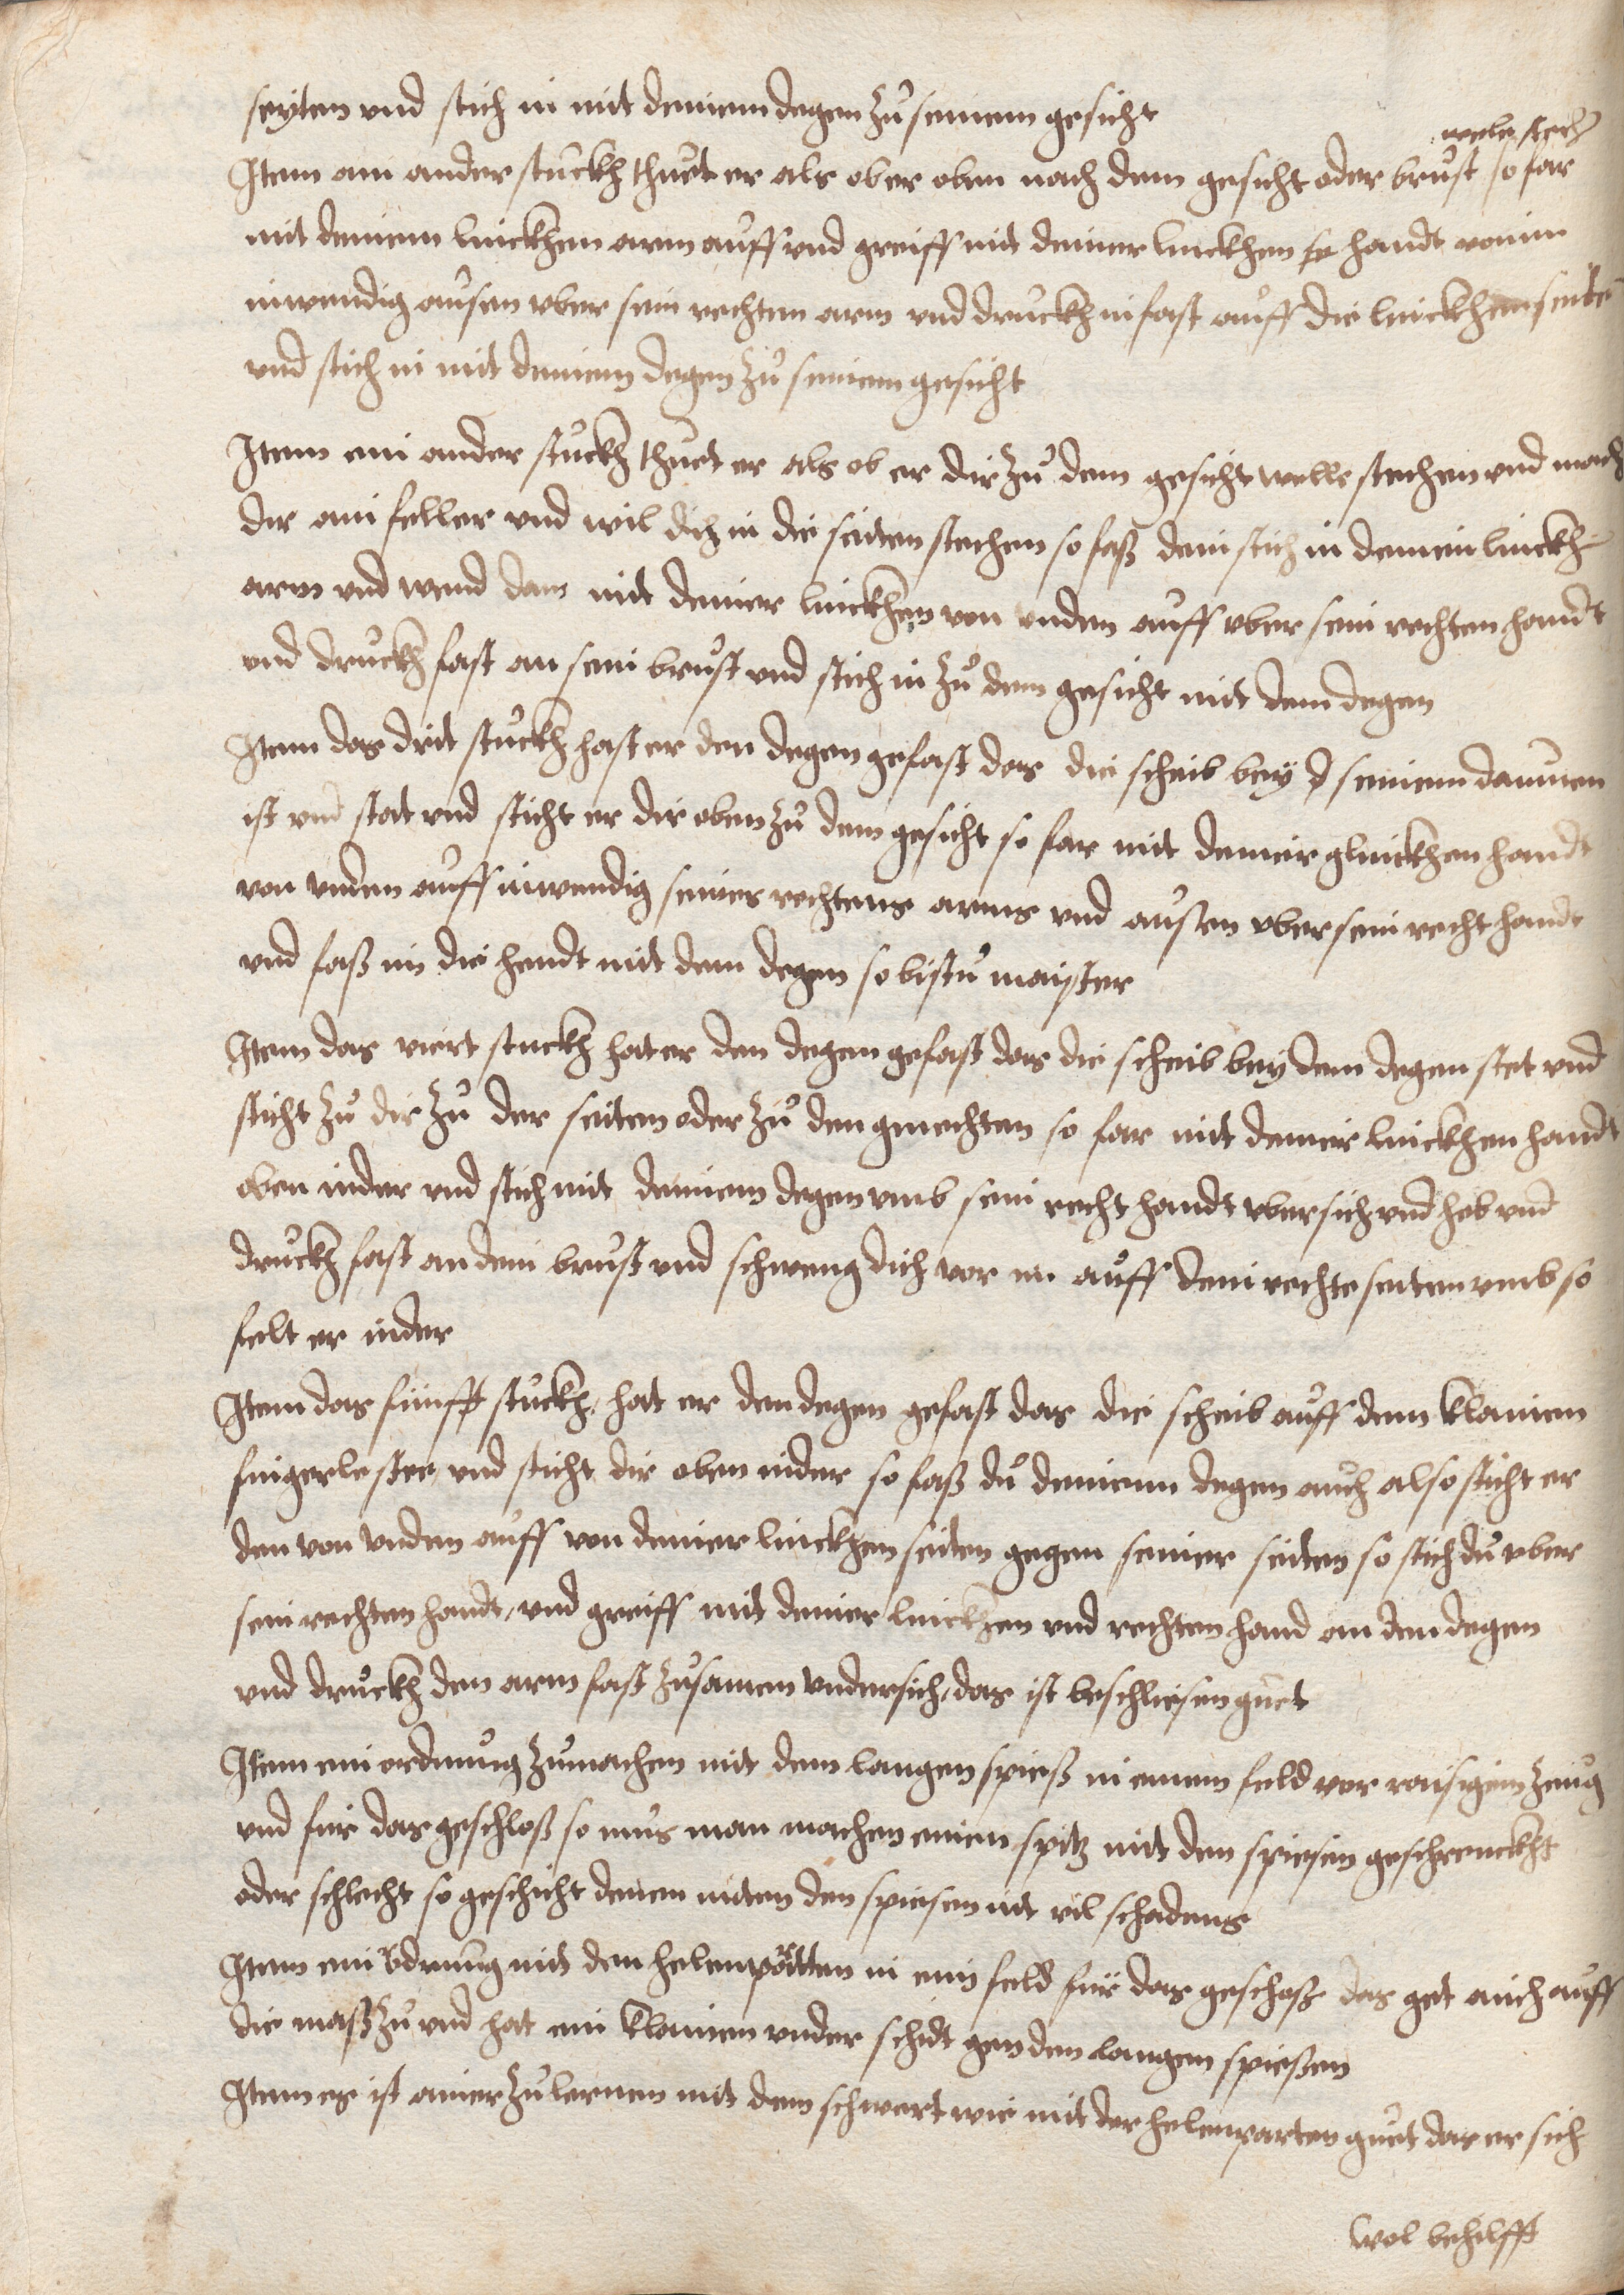 seyten vnd stich in mit deinem degen zů seinem gesicht
welle stech
Item ain ander stuckh thuet er als ob er oben nach dem gesicht oder brust so far
mit deinem linckhen arm auff vnd greiff mit deiner linckhen handt von im
inwendig ausen vber sein rechten arm vnd druckh in fast auff die linckhen seite
vnd stich in mit deinem degen zů seinem gesicht
Item ein ander stuckh thuet er als ob er dir zů dem gesicht welle stechen vnd mach
dir ain feller vnd wil dich in die seiten stechen so faß dein stich in deinein linckh
arm vnd wend dan mit deiner linckhen von vnden auff vber sein rechten handt
vnd druckh fast an sein brust vnd stich in zů dem gesicht mit dem degen
Item das drit stuckh hast er den degen gefast das die scheib bey d seinem daumen
ist vnd stat vnd sticht er dir oben zů dem gesicht so far mit deineir glinckhen handt
von vnden auff inwendig seines rechtens arms vnd ausen vber sein recht handt
vnd faß im die hendt mit dem degen so bistu maister
Item das viert stuckh hat er den degen gefast das die scheib bey dem degen stet vnd
sticht zů dir zů der seiten oder zů den gmechten so far mit deineir linckhen handt
oben nider vnd stich mit deinem degen vmb sein recht handt vber sich vnd heb vnd
druckh fast an dein brust vnd schweng dich vor im auff dein rechte seiten vmb so
felt er nider
Item das fünfft stuckh, hat er den degen gefast das die scheib auff dem klainen
fingerle stee vnd sticht dir oben nider so faß dů deinenn degen auch also sticht er
den von vnden auff von deiner linckhen seiten gegen seiner seiten so stich dů vber
sein rechten handt, vnd greiff mit deiner linckhen vnd rechten hand an den degen
vnd druckh den arm fast zůsamen vndersich, das ist beschliesen guet
Item ein ordnung zůmachen mit dem langen spieß in einem feld vor raisigem zeug
vnd für das geschloß so mus man machen einen spitz mit den spiesen geschrenckht
oder schlecht so geschicht denen miten den spiesen nit vil schadens
Item ein ordnung mit den helenpartten in ein feld für das geschoß das get auch auff
die maß zů vnd hat ein klainen vnder schidt gen den langen spießen
Item es ist ainer zů lernen mit dem schwert wie mit der helenparten guet das er sich
wol behilfft